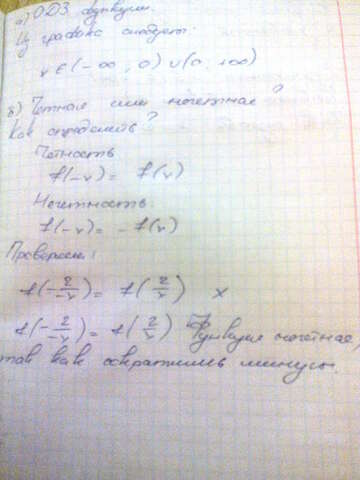 а) ОДЗ функции.
Из графика следует:
x ∈ (-∞, 0) ∪ (0, +∞)
б) Четная или нечетная?
Как определить?
Четность
f(-x) = f(x)
Нечетность:
f(-x) = -f(x)
Проверяем:
f(-2/-x) = f(2/x) x
f(-2/-x) = f(2/x) Функция нечетная,
так как сократились минусы.